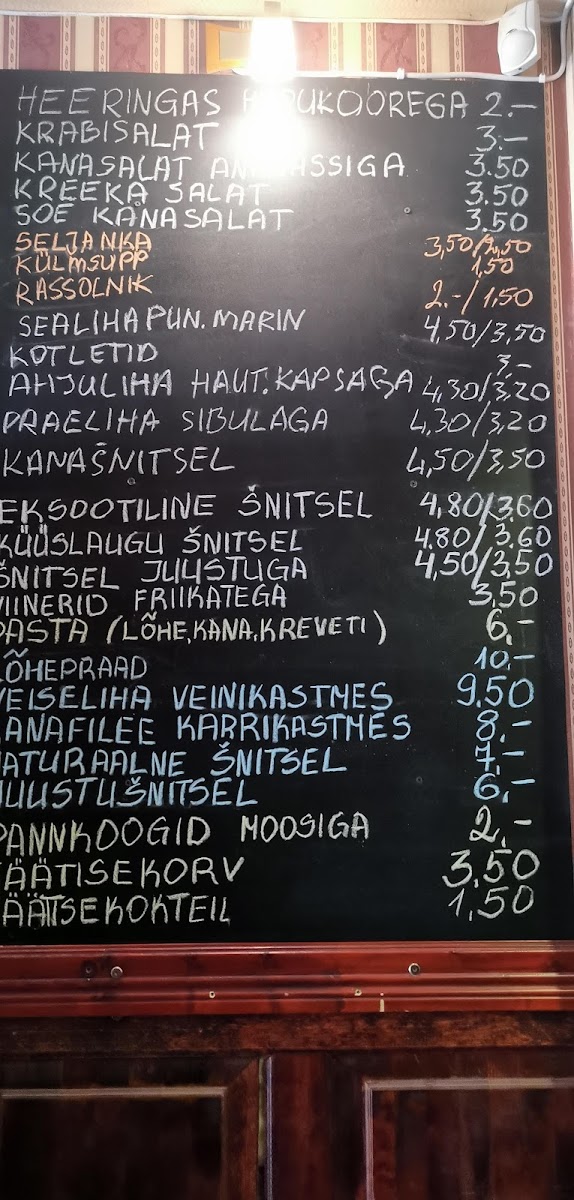 HEERINGAS HAPUKOOREGA 2.–
KRABISALAT 3.–
KANASALAT ANANASSIGA 3.50
KREEKA SALAT 3.50
SOE KANASALAT 3.50
SELJANKA 3,50/2,50
KÜLMSUPP 1,50
RASSOLNIK 2.-/1,50
SEALIHA PUN. MARIN 4,50/3,50
KOTLETID 3.–
AHJULIHA HAUT. KAPSAGA 4,30/3,20
PRAELIHA SIBULAGA 4,30/3,20
KANAŠNITSEL 4,50/3,50
EKSOOTILINE ŠNITSEL 4,80/3.60
KÜÜSLAUGU ŠNITSEL 4.80/3.60
ŠNITSEL JUUSTUGA 4,50/3,50
VIINERID FRIIKATEGA 3,50
PASTA (LÕHE,KANA,KREVETI) 6,–
LÕHEPRAAD 10,–
VEISELIHA VEINIKASTMES 9,50
KANAFILEE KARRIKASTMES 8,–
NATURAALNE ŠNITSEL 7,–
JUUSTUŠNITSEL 6,–
PANNKOOGID MOOSIGA 2,–
JÄÄTISEKORV 3,50
JÄÄTISEKOKTEIL 1,50